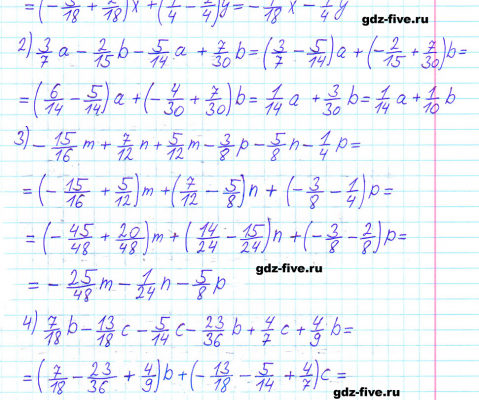 = (- 5/18 + 2/18)x + (1/4 - 2/4)y = - 1/18 x - 1/4 y
gdz-five.ru
2) 3/7 a - 2/15 b - 5/14 a + 7/30 b = (3/7 - 5/14) a + (- 2/15 + 7/30) b =
= (6/14 - 5/14) a + (- 4/30 + 7/30) b = 1/14 a + 3/30 b = 1/14 a + 1/10 b
3) - 15/16 m + 7/12 n + 5/12 m - 3/8 p - 5/8 n - 1/4 p =
= (- 15/16 + 5/12) m + (7/12 - 5/8) n + (- 3/8 - 1/4) p =
= (- 45/48 + 20/48) m + (14/24 - 15/24) n + (- 3/8 - 2/8) p =
gdz-five.ru
= - 25/48 m - 1/24 n - 5/8 p
4) 7/18 b - 13/18 c - 5/14 c - 23/36 b + 4/7 c + 4/9 b =
= (7/18 - 23/36 + 4/9) b + (- 13/18 - 5/14 + 4/7) c =
gdz-five.ru